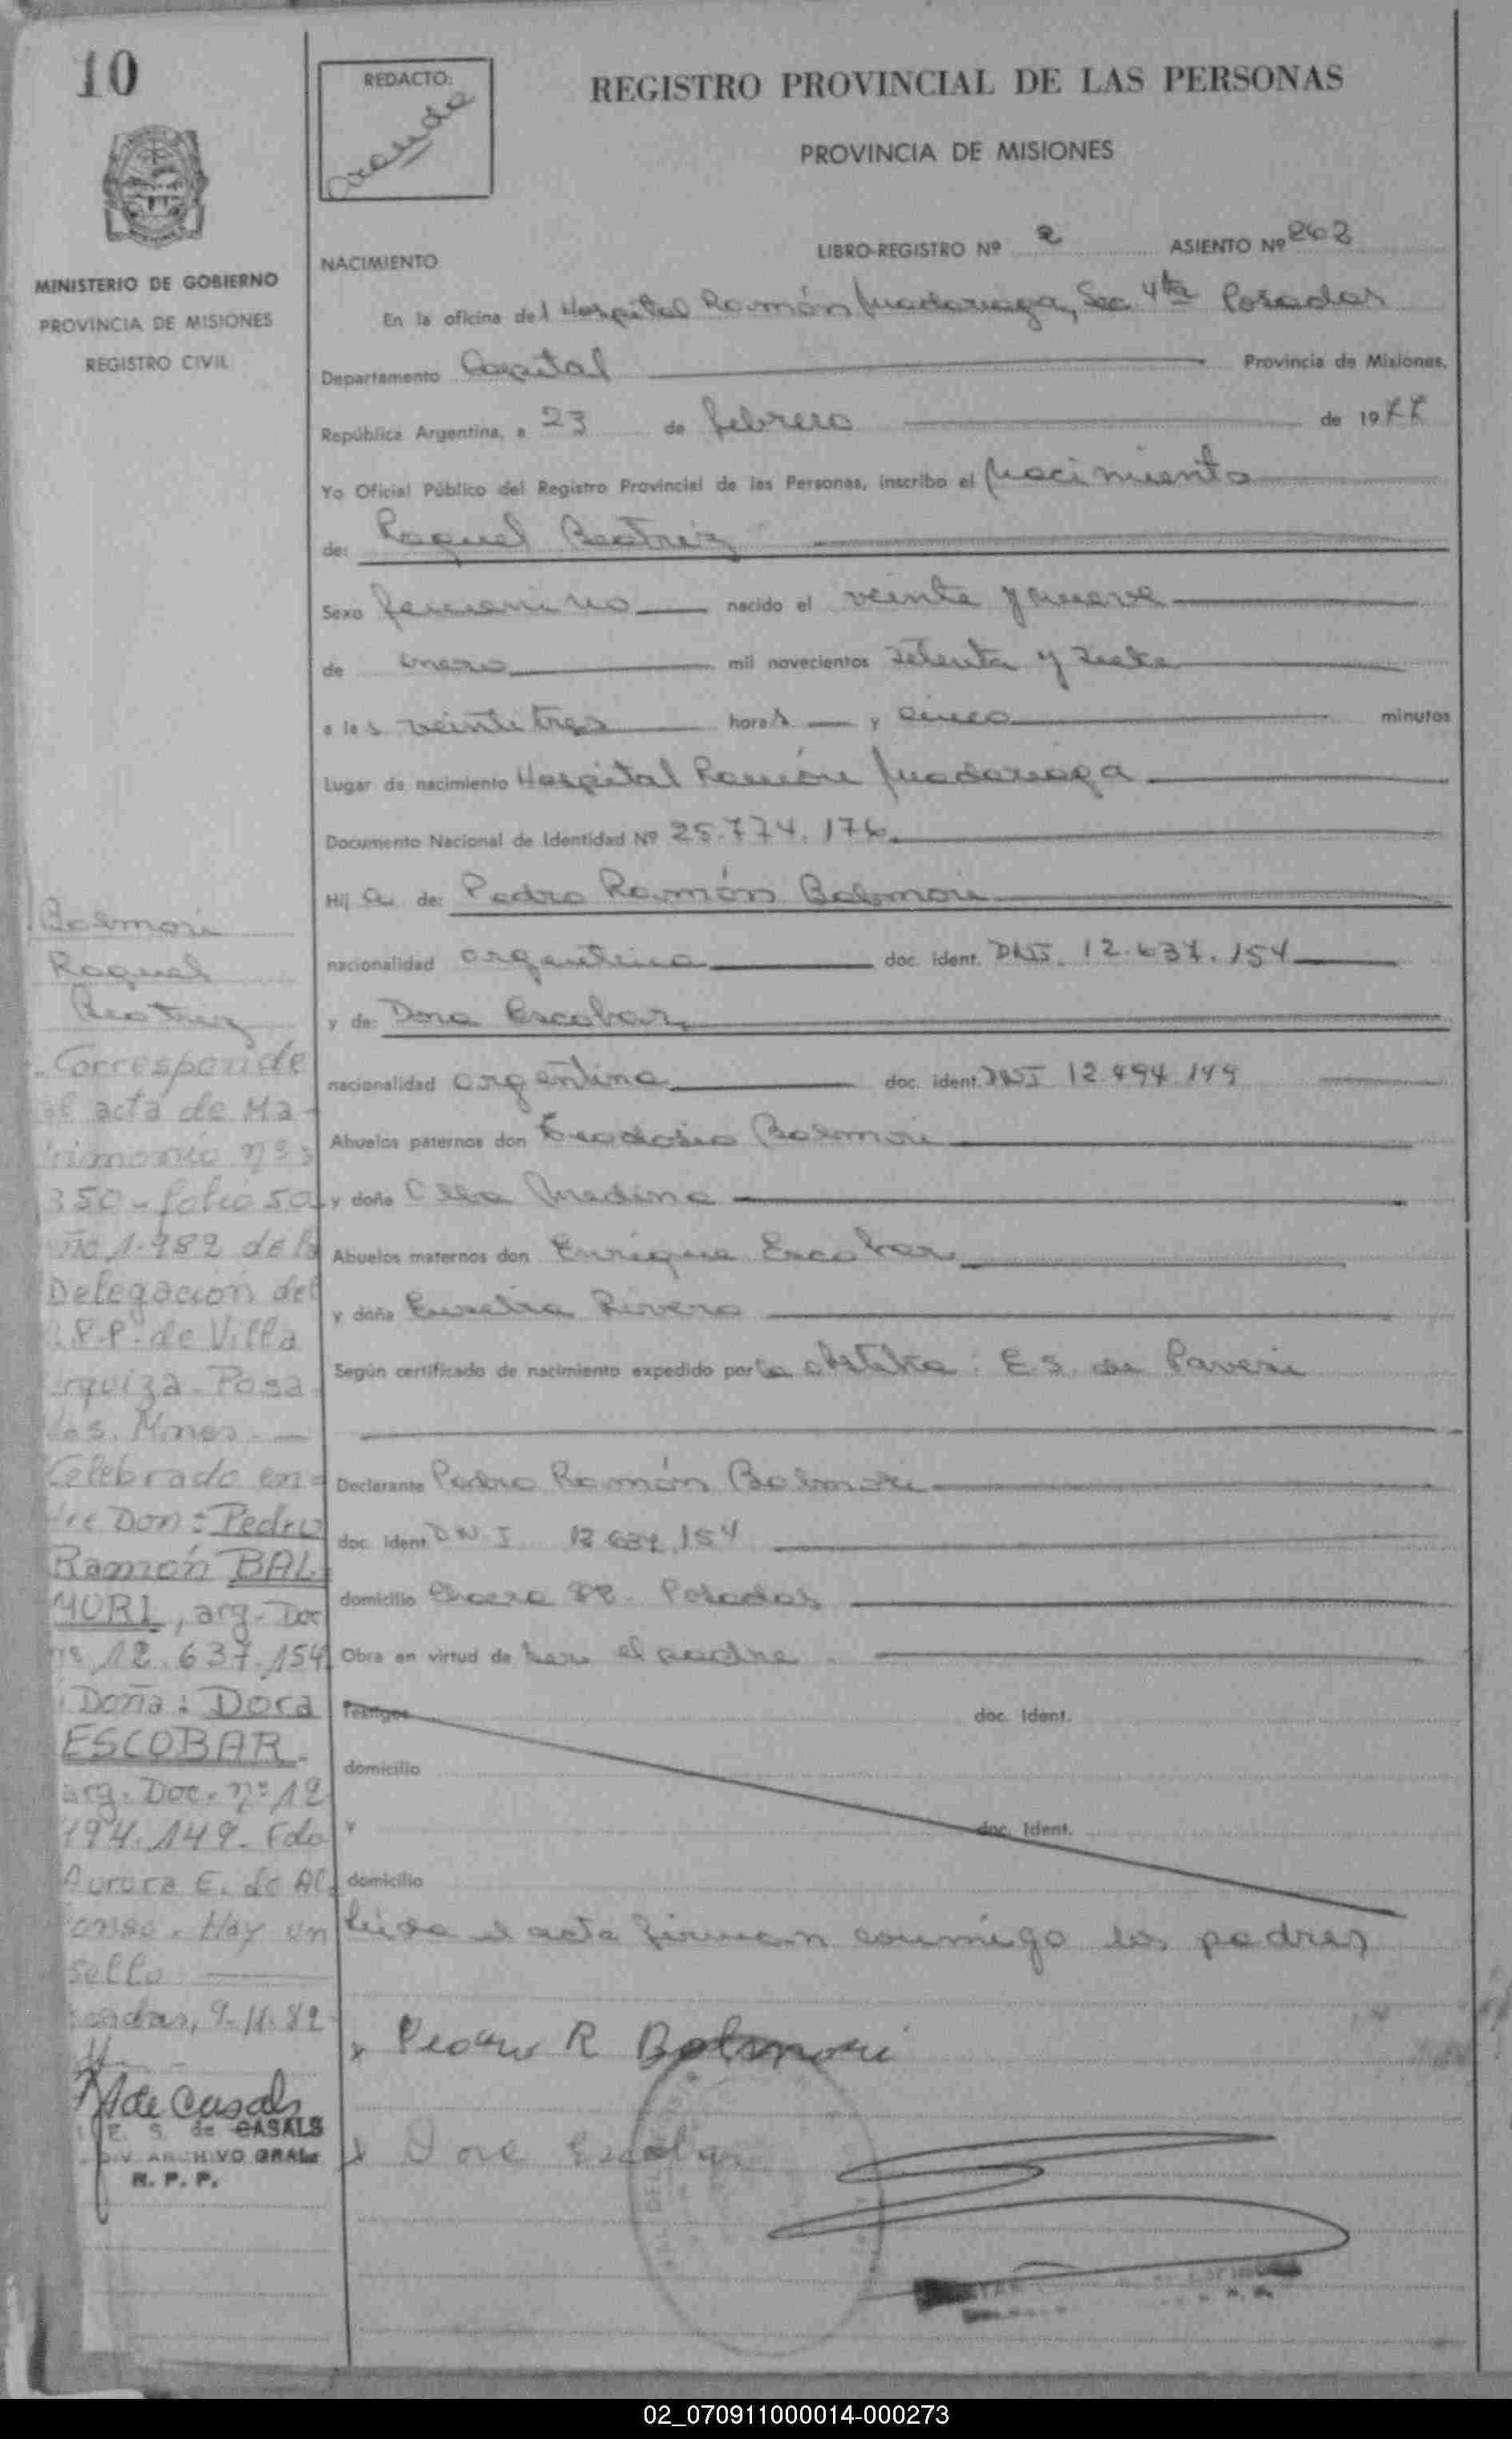 10
REDACTO:
REGISTRO PROVINCIAL DE LAS PERSONAS
PROVINCIA DE MISIONES
LIBRO-REGISTRO Nº 2 ASIENTO Nº 262
NACIMIENTO
MINISTERIO DE GOBIERNO
PROVINCIA DE MISIONES
REGISTRO CIVIL
En la oficina del Hospital Ramón Madariaga, Sec. 4ta Posadas
Departamento Capital Provincia de Misiones,
República Argentina, a 23 de febrero de 1977
Yo Oficial Público del Registro Provincial de las Personas, inscribo el Nacimiento
de: Raquel Beatriz
Sexo femenino nacido el veinte y nueve
de enero mil novecientos setenta y siete
a las veintetres horas y cinco minutos
Lugar de nacimiento Hospital Ramón Madariaga
Documento Nacional de Identidad Nº 25.774.176
Hij a de: Pedro Ramón Balmori
nacionalidad argentina doc. Ident. DNI. 12.637.154
y de: Dora Escobar
nacionalidad argentina doc. ident. DNI 12 494 149
Abuelos paternos don Teodosio Balmori
y doña Medina
Abuelos maternos don Enrique Escobar
y doña Rivero
Según certificado de nacimiento expedido por la obstetra: E.S. de Pavesi
Declarante Pedro Ramón Balmori
doc. Ident. DNI 12.637.154
domicilio Posadas
Obra en virtud de ser el padre
Testigos doc. Ident.
domicilio
y doc. Ident.
domicilio
Leída el acta firman conmigo los padres
Pedro R Balmori
Escobar
Balmori
Raquel
Beatriz
Corresponde
al acta de Ma-
trimonio nº
350 - folio 50
año 1.982 de la
Delegación del
R.P.P. de Villa
Urquiza - Posa
das. Mnes.
Celebrado en=
tre Don: Pedro
Ramón BAL=
MORI, arg. Doc
nº 12.637.154
Doña: Dora
ESCOBAR.
arg. Doc. nº 12
494.149. Fdo
Aurora E. de Al
onso. Hay un
sello
Posadas, 9-11-82
de Casals
E. S. de CASALS
DIV. ARCHIVO GRAL.
R. P. P.
02_070911000014-000273